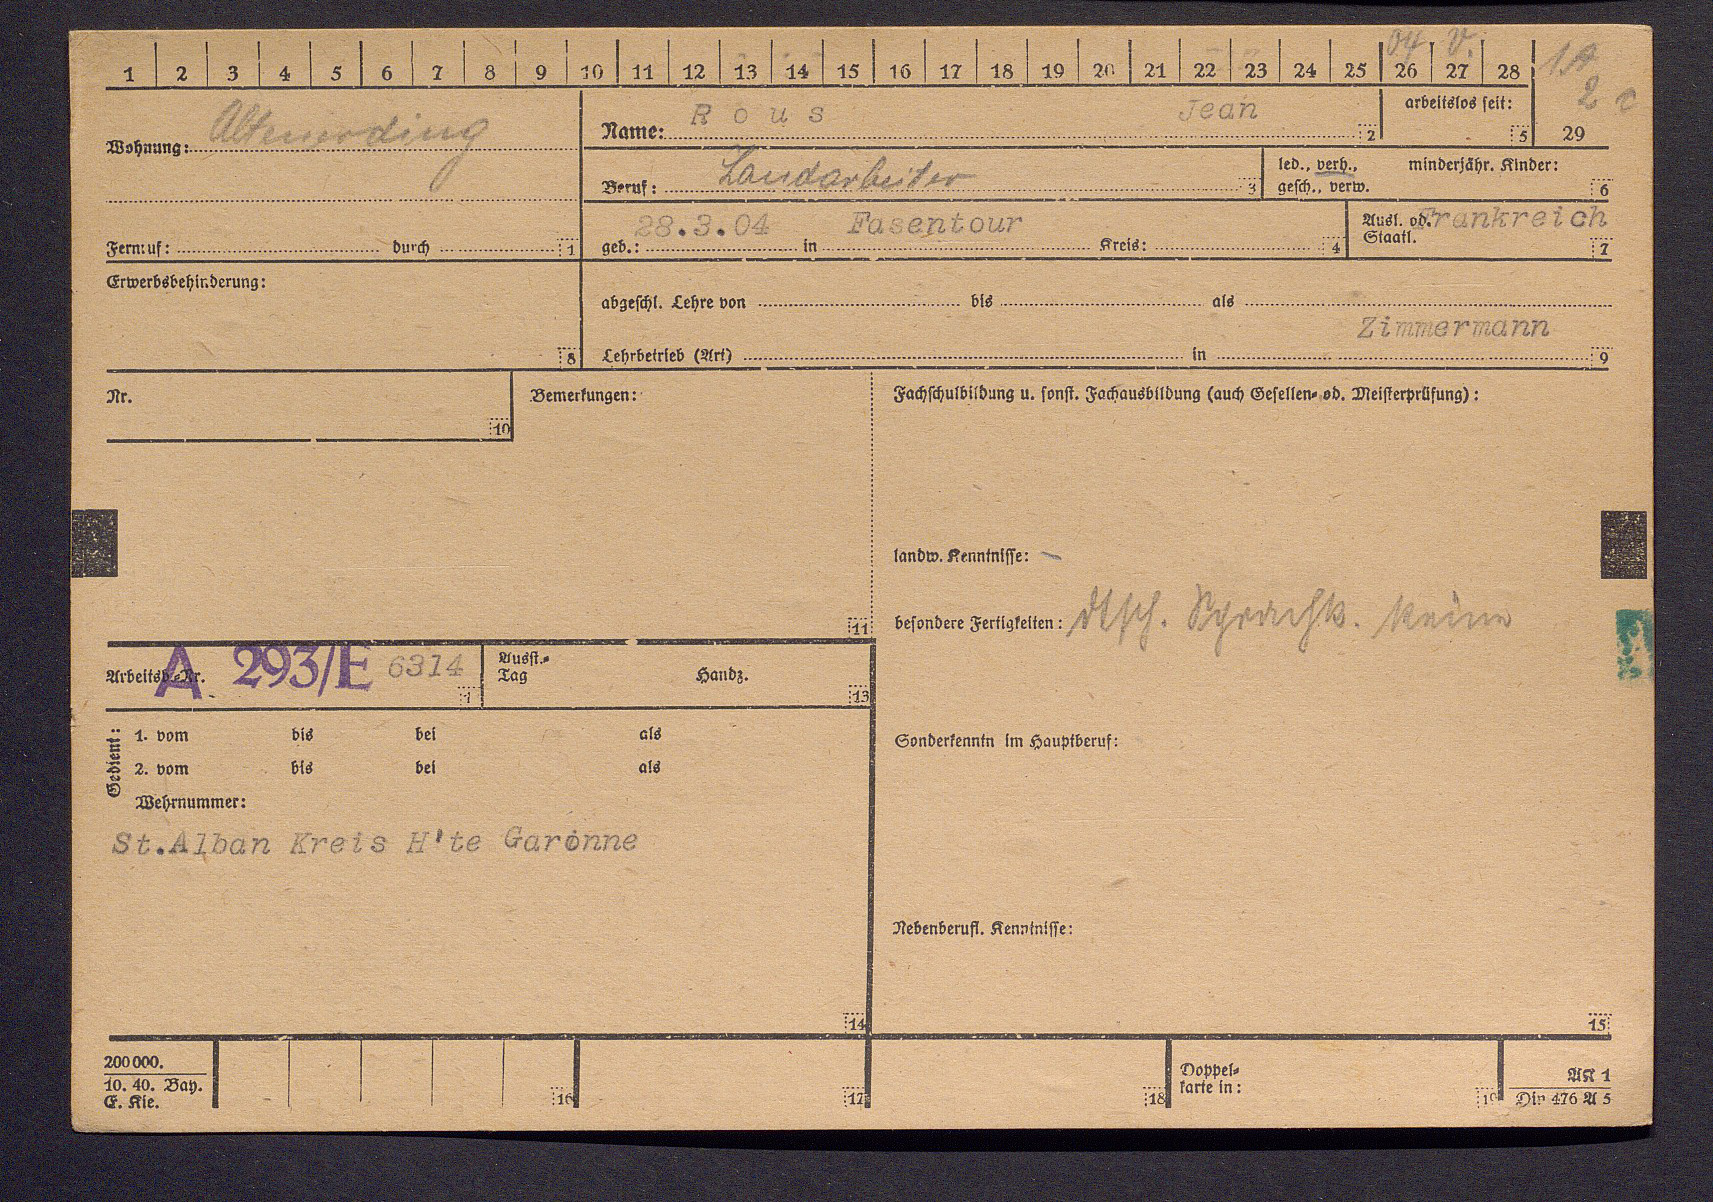 1 2 3 4 5 6 7 8 9 10 11 12 13 14 15 16 17 18 19 20 21 22 23 24 25 26 27 28
04 V.
1A
2 c
29
Wohnung: Altenerding
Name: Rous Jean 2
arbeitslos seit: 5
Beruf: Landarbeiter 3
led., verh., gesch., verw.
minderjähr. Kinder: 6
Fernruf: durch 1
28.3.04 Fasentour
geb.: in Kreis: 4
Ausl. od. Frankreich
Staatl. 7
Erwerbsbehinderung:
8
abgeschl. Lehre von bis als
Zimmermann
Lehrbetrieb (Art) in 9
Nr.
10
Bemerkungen:
11
Fachschulbildung u. sonst. Fachausbildung (auch Gesellen- od. Meisterprüfung):
landw. Kenntnisse: –
besondere Fertigkeiten: dtsch. Sprachk. keine
Arbeitsb.-Nr. A 293/E 6314
Ausst.-
Tag
Handz.
13
Gedient:
1. vom bis bei als
2. vom bis bei als
Wehrnummer:
St.Alban Kreis H'te Garonne
14
Sonderkenntn im Hauptberuf:
Nebenberufl. Kenntnisse:
15
200 000.
10. 40. Bay.
E. Kie.
16
17
18
Doppel-
karte in:
19
AK 1
Din 476 A 5